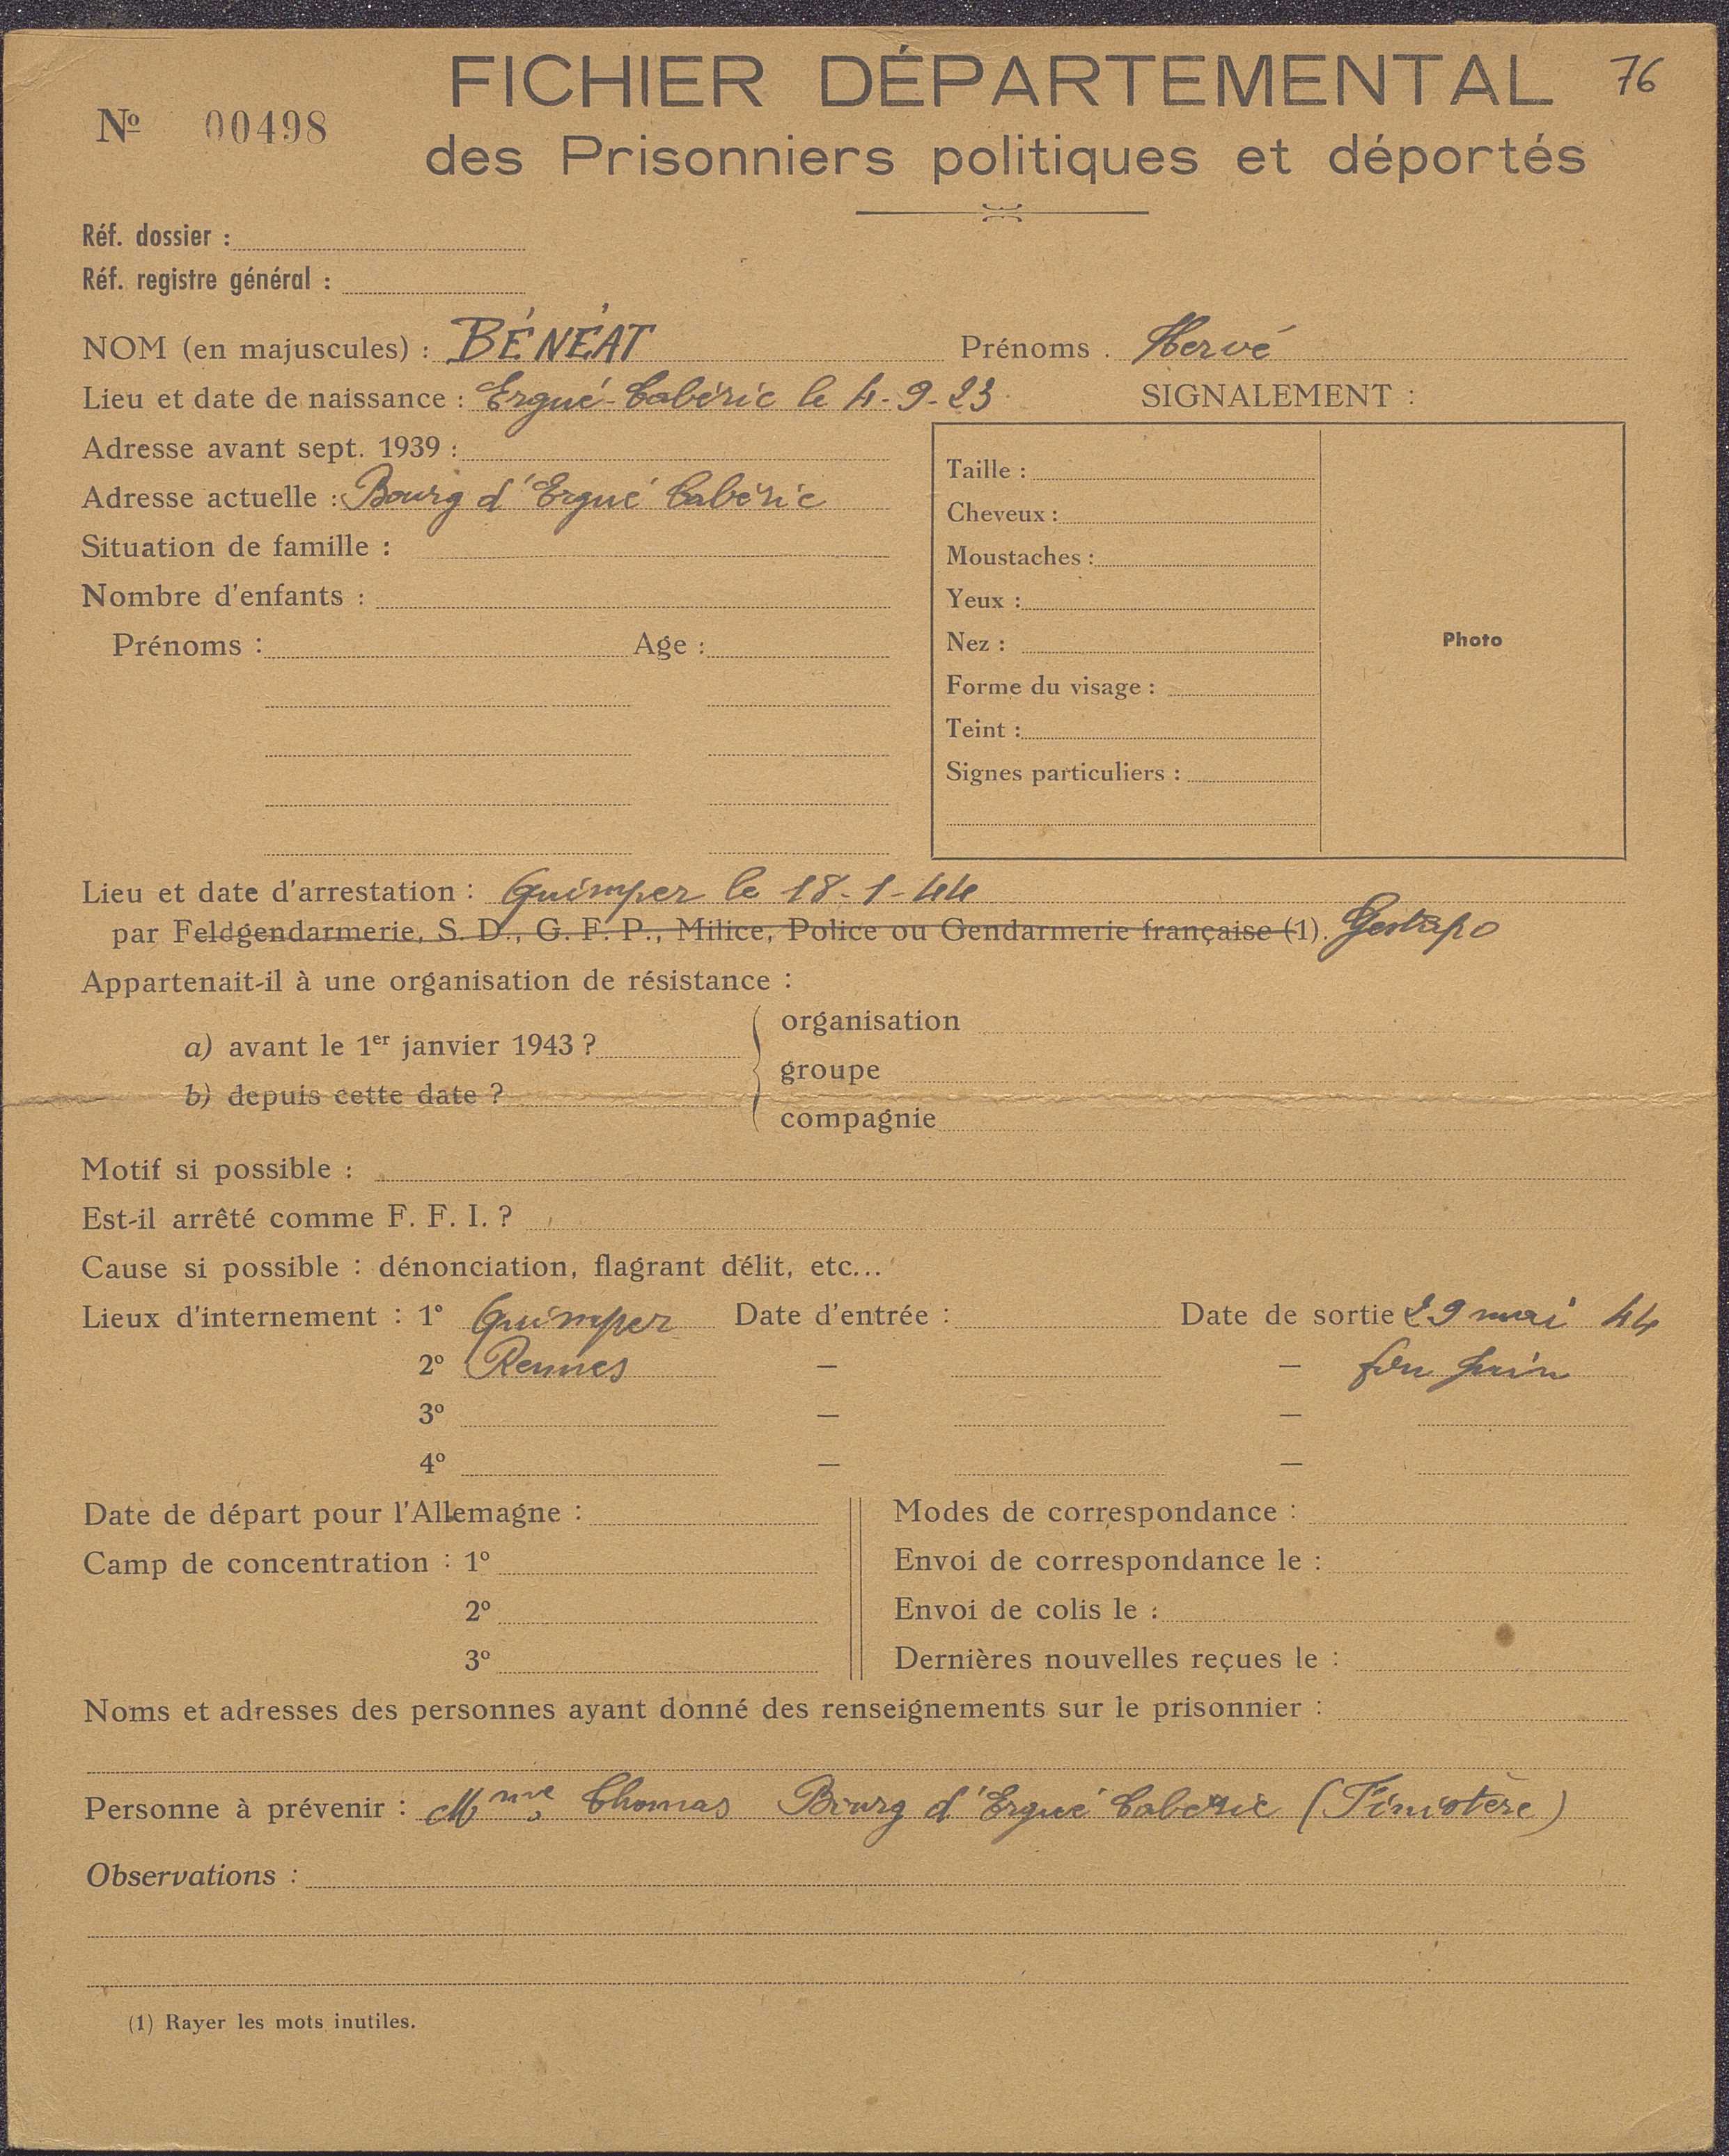 FICHIER DÉPARTEMENTAL 76
Nº 00498
des Prisonniers politiques et déportés
Réf. dossier :
Réf. registre général :
NOM (en majuscules) : BÉNÉAT Prénoms . Hervé
Lieu et date de naissance : Ergué-Gabéric le 4-9-23 SIGNALEMENT :
Adresse avant sept. 1939 :
Adresse actuelle : Bourg d'Ergué Gabéric
Situation de famille :
Nombre d'enfants :
Prénoms : Age :
Taille :
Cheveux :
Moustaches :
Yeux :
Nez :
Forme du visage :
Teint :
Signes particuliers :
Photo
Lieu et date d'arrestation : Quimper le 18-1-44
par Feldgendarmerie, S. D., G. F. P., Milice, Police ou Gendarmerie française (1). Gestapo
Appartenait-il à une organisation de résistance :
a) avant le 1er janvier 1943 ?
b) depuis cette date ?
organisation
groupe
compagnie
Motif si possible :
Est-il arrêté comme F. F. I. ?
Cause si possible : dénonciation, flagrant délit, etc...
Lieux d'internement : 1º Quimper Date d'entrée : Date de sortie 29 mai 44
2º Rennes — — fin juin
3º — —
4º — —
Date de départ pour l'Allemagne :
Camp de concentration : 1º
2º
3º
Modes de correspondance :
Envoi de correspondance le :
Envoi de colis le :
Dernières nouvelles reçues le :
Noms et adresses des personnes ayant donné des renseignements sur le prisonnier :
Personne à prévenir : Mme Thomas Bourg d'Ergué Gabéric (Finistère)
Observations :
(1) Rayer les mots inutiles.